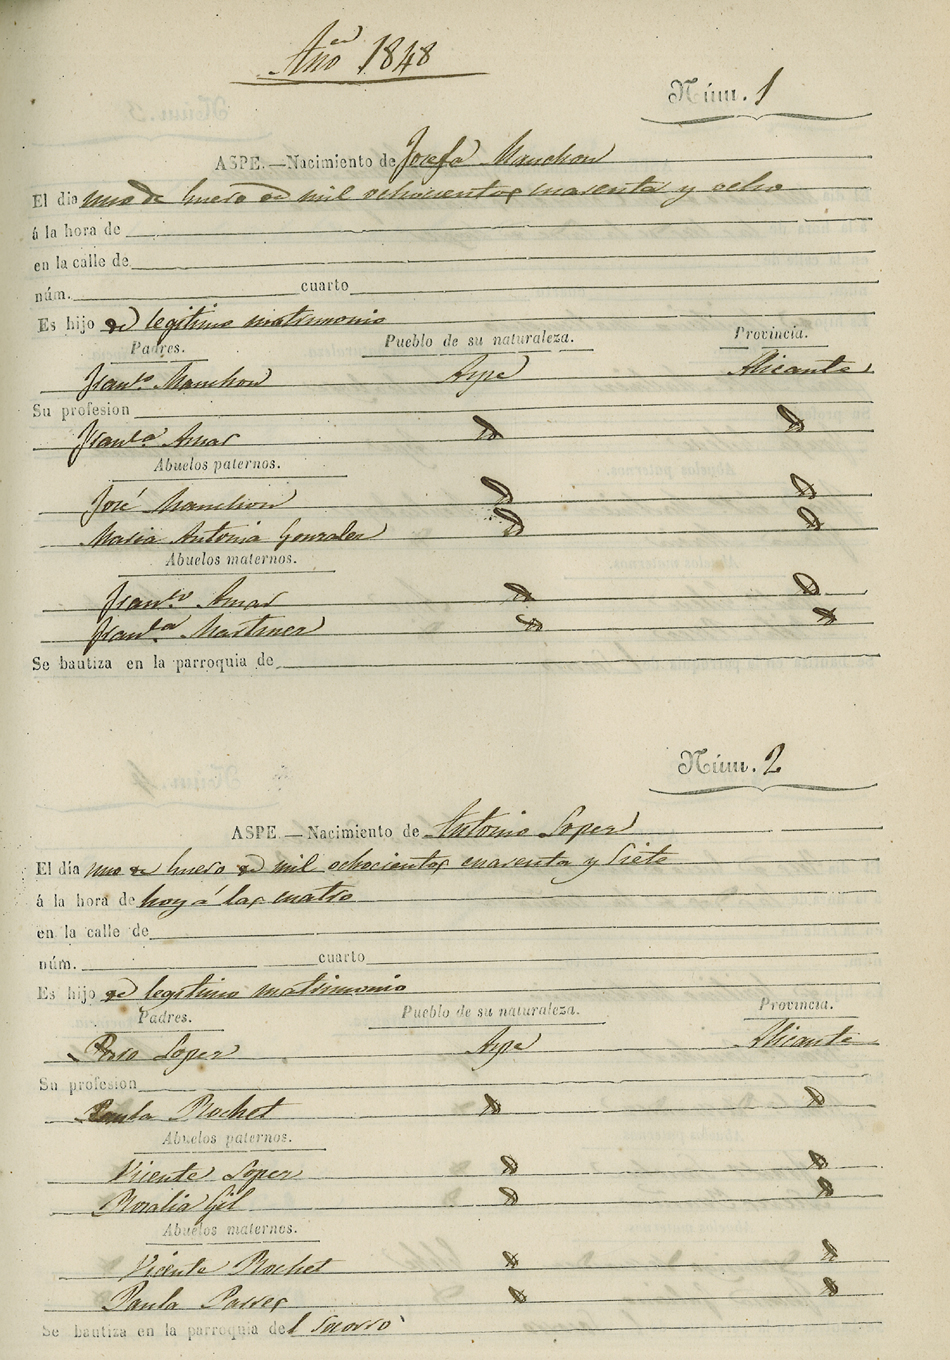 Año 1848
Núm. 1
ASPE.—Nacimiento de Josefa Manchon
El dia uno de Enero de mil ochocientos cuarenta y ocho
á la hora de
en la calle de
núm. cuarto
Es hijo de legitimo matrimonio
Padres. Pueblo de su naturaleza. Provincia.
Franco Manchon Aspe Alicante
Su profesion
Franca Amar
Abuelos paternos.
José Manchon
Maria Antonia Gonzalez
Abuelos maternos.
Franco Amar
Franca Martinez
Se bautiza en la parroquia de
Núm. 2
ASPE.—Nacimiento de Antonio Lopez
El dia uno de Enero de mil ochocientos cuarenta y siete
á la hora de hoy á las cuatro
en la calle de
núm. cuarto
Es hijo de legitimo matrimonio
Padres. Pueblo de su naturaleza. Provincia.
Lopez Aspe Alicante
Su profesion
Paula Rochet
Abuelos paternos.
Vicente Lopez
Rosalia Gil
Abuelos maternos.
Vicente Rochet
Paula
Se bautiza en la parroquia del Socorro